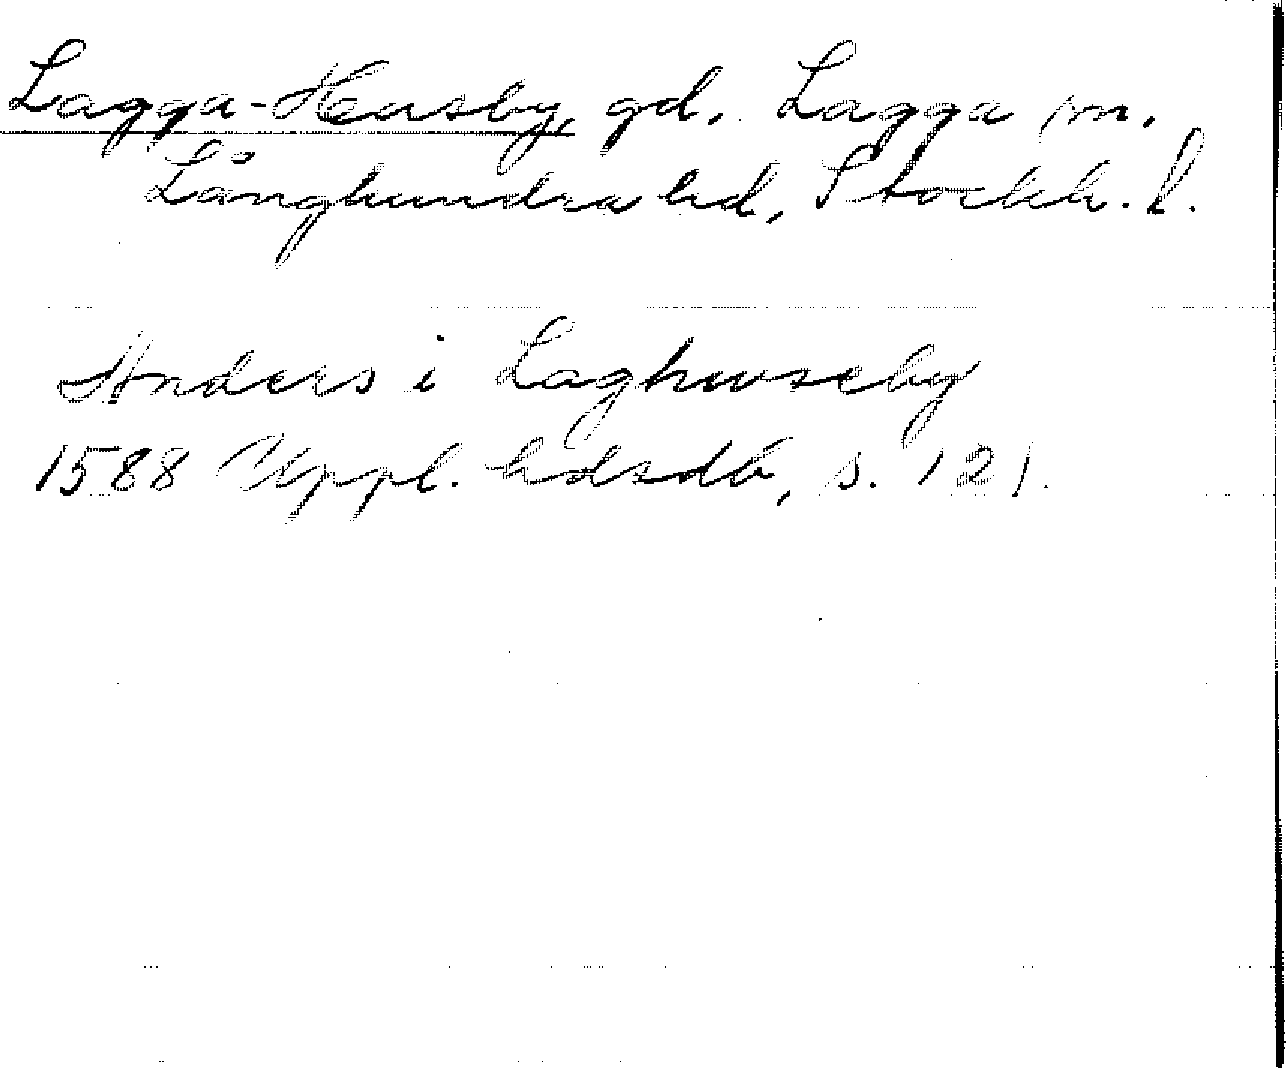 Lagga-Husby, gd. Lagga sn.
Långhundra hd, Stockh. l.
Anders i Laghwseby
1588 Uppl. hdsdb, s. 121.